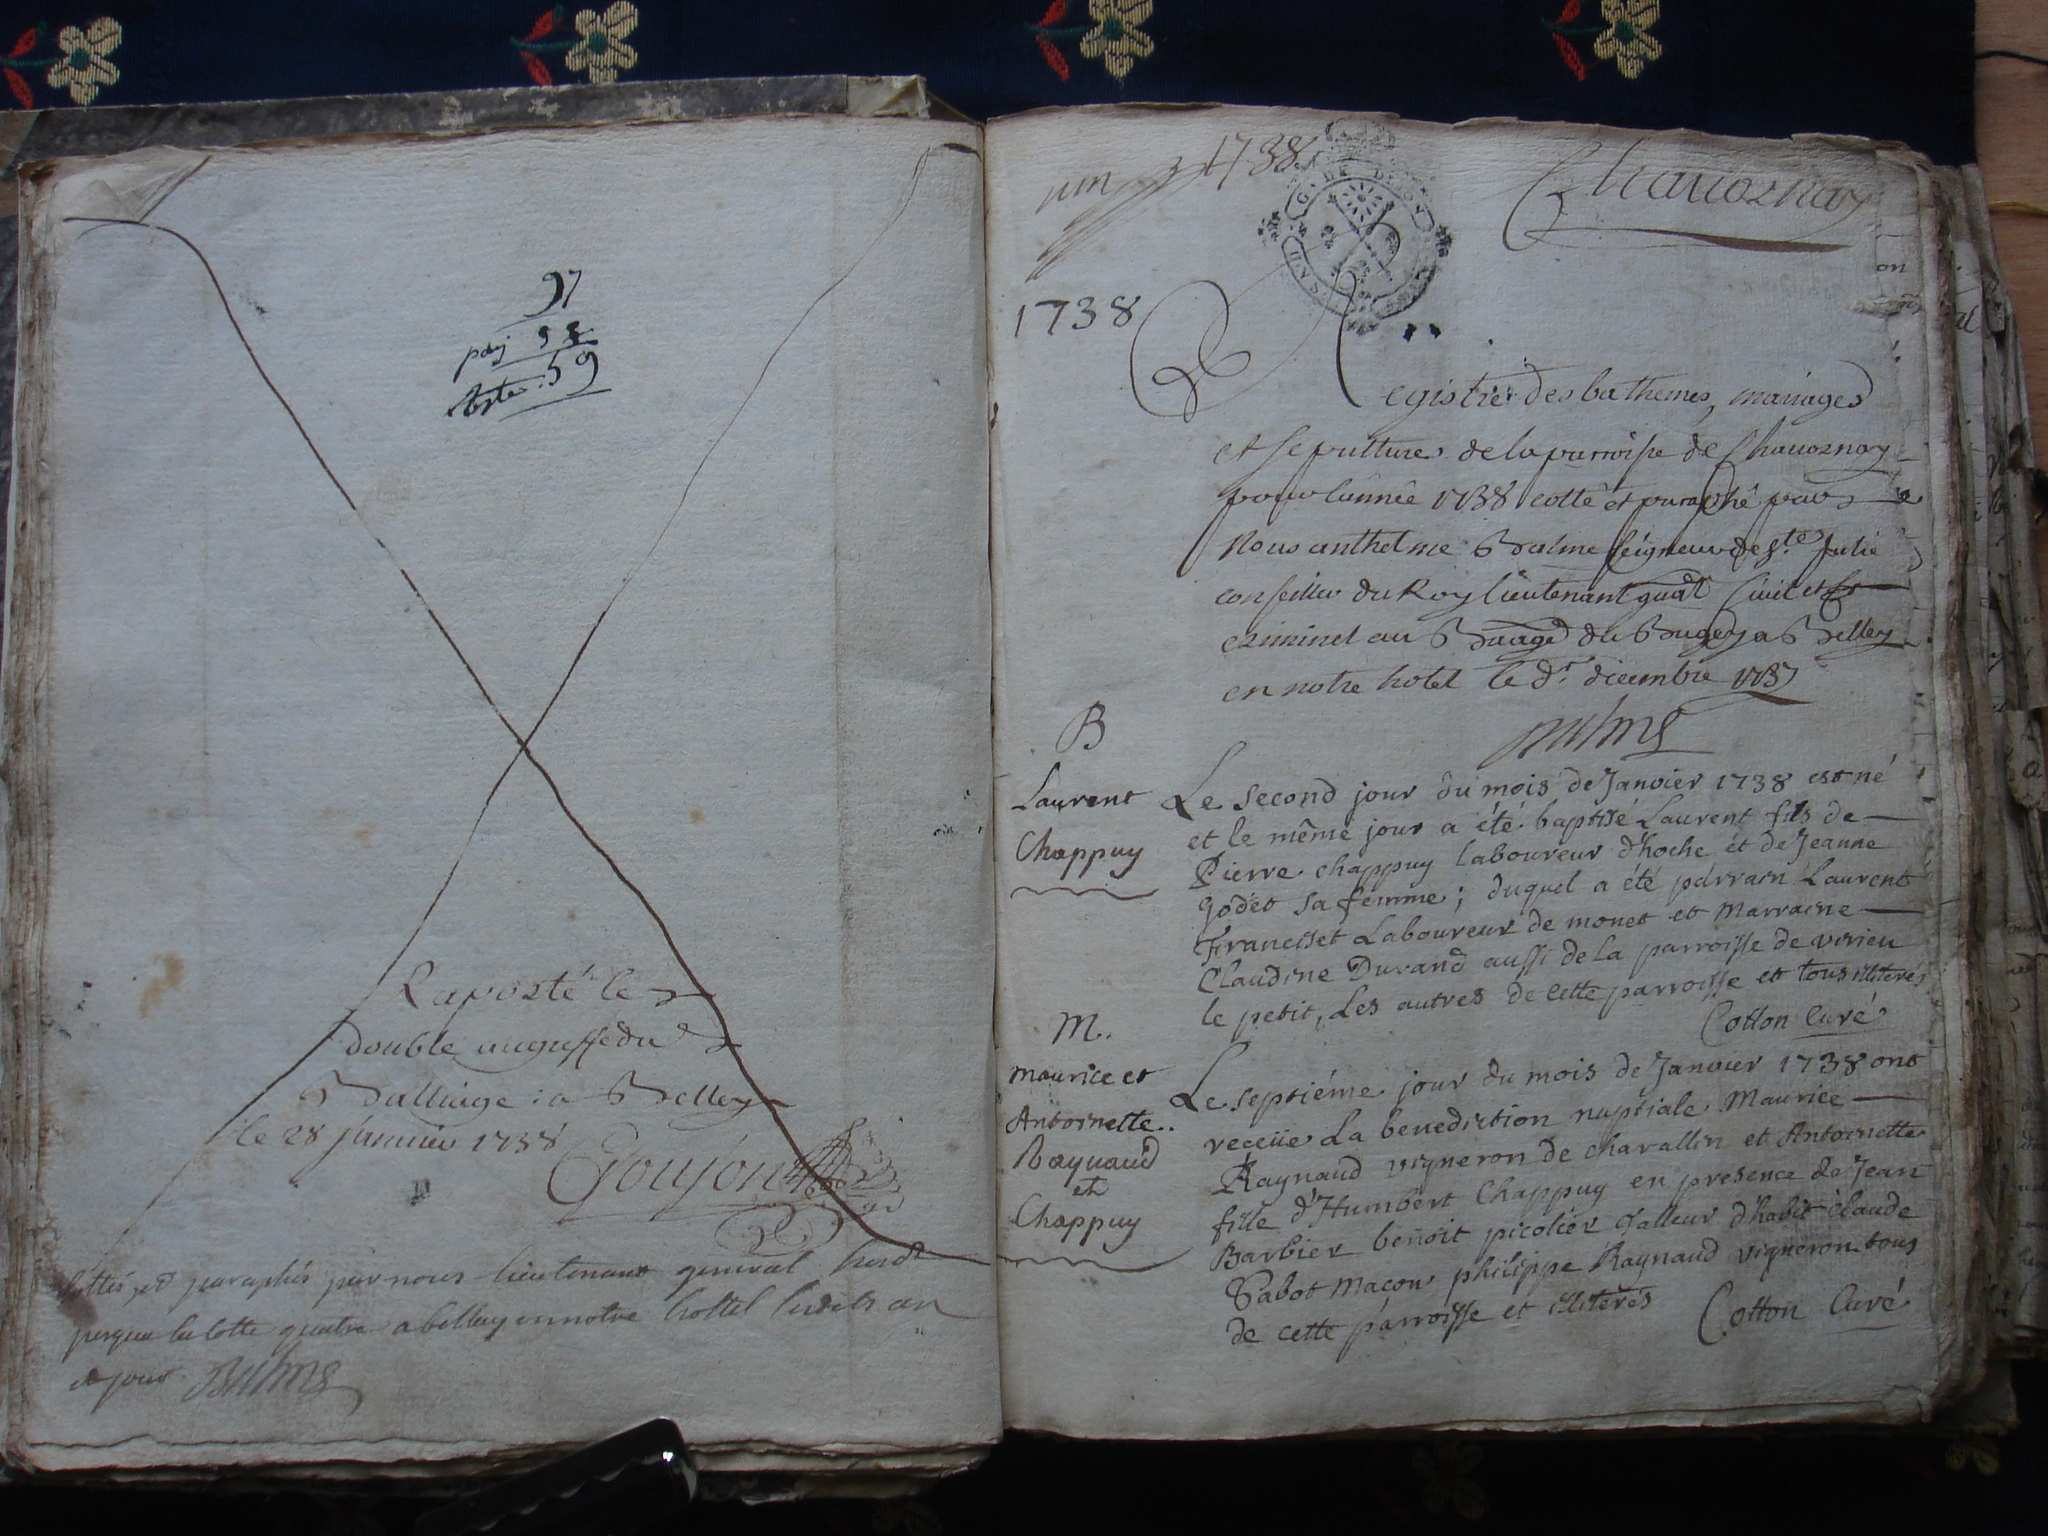 97
59
Raporté le
double au greffe du
Balliage a Belley
le 28 janvier 1738
Goujon
Cottés et paraphés par nous lieutenant general
jusque la cotte quatre a belley en notre hottel
et jour Balme
un 1738
Chavoznay
G. DE DIJON
1738
Registre des bathemes, mariages
et sepulture de la parroisse de Chavoznay
pour l'année 1738 cotté et paraphé par
Nous anthelme Balme seigneur de Ste Julie
conseiller du Roy lieutenant gnãl Civil et
criminel au Baage du Bugey a Belley
en notre hotel le dr. decembre 1737
Balme
B
Laurent
Chappuy
Le second jour du mois de Janvier 1738 est né
et le même jour a été baptisé Laurent fils de
Pierre chappuy laboureur d'hoche et de Jeanne
godet sa femme; duquel a été parrain Laurent
Francisset Laboureur de monet et Marraine
Claudine Durand aussi de la parroisse de virieu
le petit, Les autres de cette parroisse et tous illiterés
Cotton Curé
M.
maurice et
Antoinette..
Raynaud
et
Chappuy
Le septiéme jour du mois de Janvier 1738 ont
receüe La benediction nuptiale Maurice
Raynaud vigneron de charallin et Antoinette
fille d'Humbert Chappuy en presence de Jean
Barbier benoit picolier talleur d'habit claude
Sabot Macon philippe Raynaud vigneron tous
de cette parroisse et illiterés Cotton Curé